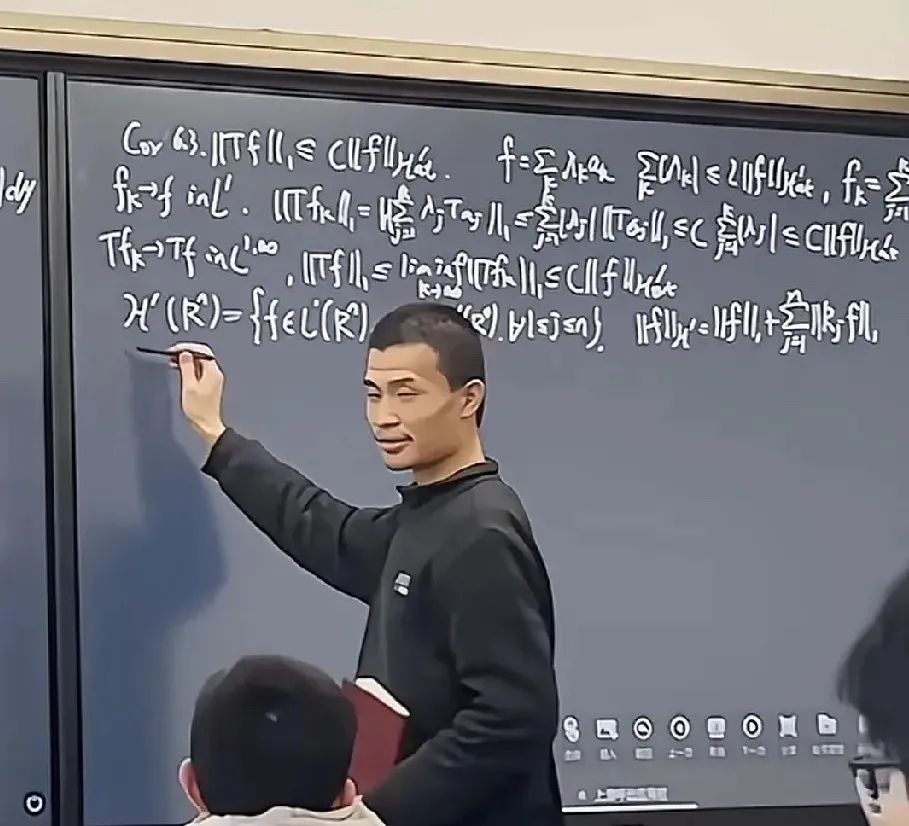 Cor 6.3. ||Tf||₁ ≤ C||f||_{H¹at}. f = Σ_k λₖaₖ Σ_k |λₖ| ≤ 2||f||_{H¹at}, fₖ = Σ
|dy
fₖ → f in L¹. ||Tfₖ||₁ = ||Σ_{j=1}^k λⱼTaⱼ||₁ ≤ Σ_{j=1}^k |λⱼ| ||Taⱼ||₁ ≤ C Σ_{j=1}^k |λⱼ| ≤ C||f||_{H¹at}
Tfₖ → Tf in L^{1,∞}, ||Tf||₁ ≤ lim inf_{k→∞} ||Tfₖ||₁ ≤ C||f||_{H¹at}
H¹(ℝⁿ) = {f ∈ L¹(ℝⁿ) ¹(ℝⁿ). ∀1≤j≤n}. ||f||_{H¹} = ||f||₁ + Σ_{j=1}^n ||Rⱼf||₁
上一页 下一页